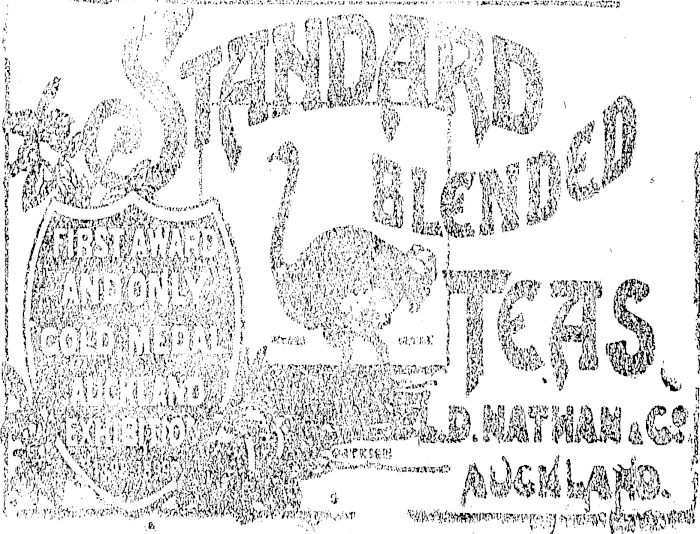 STANDARD
BLENDED
TEAS
FIRST AWARD
AND ONLY
GOLD MEDAL
AUCKLAND
EXHIBITION
L.D. NATHAN & Co
AUCKLAND.